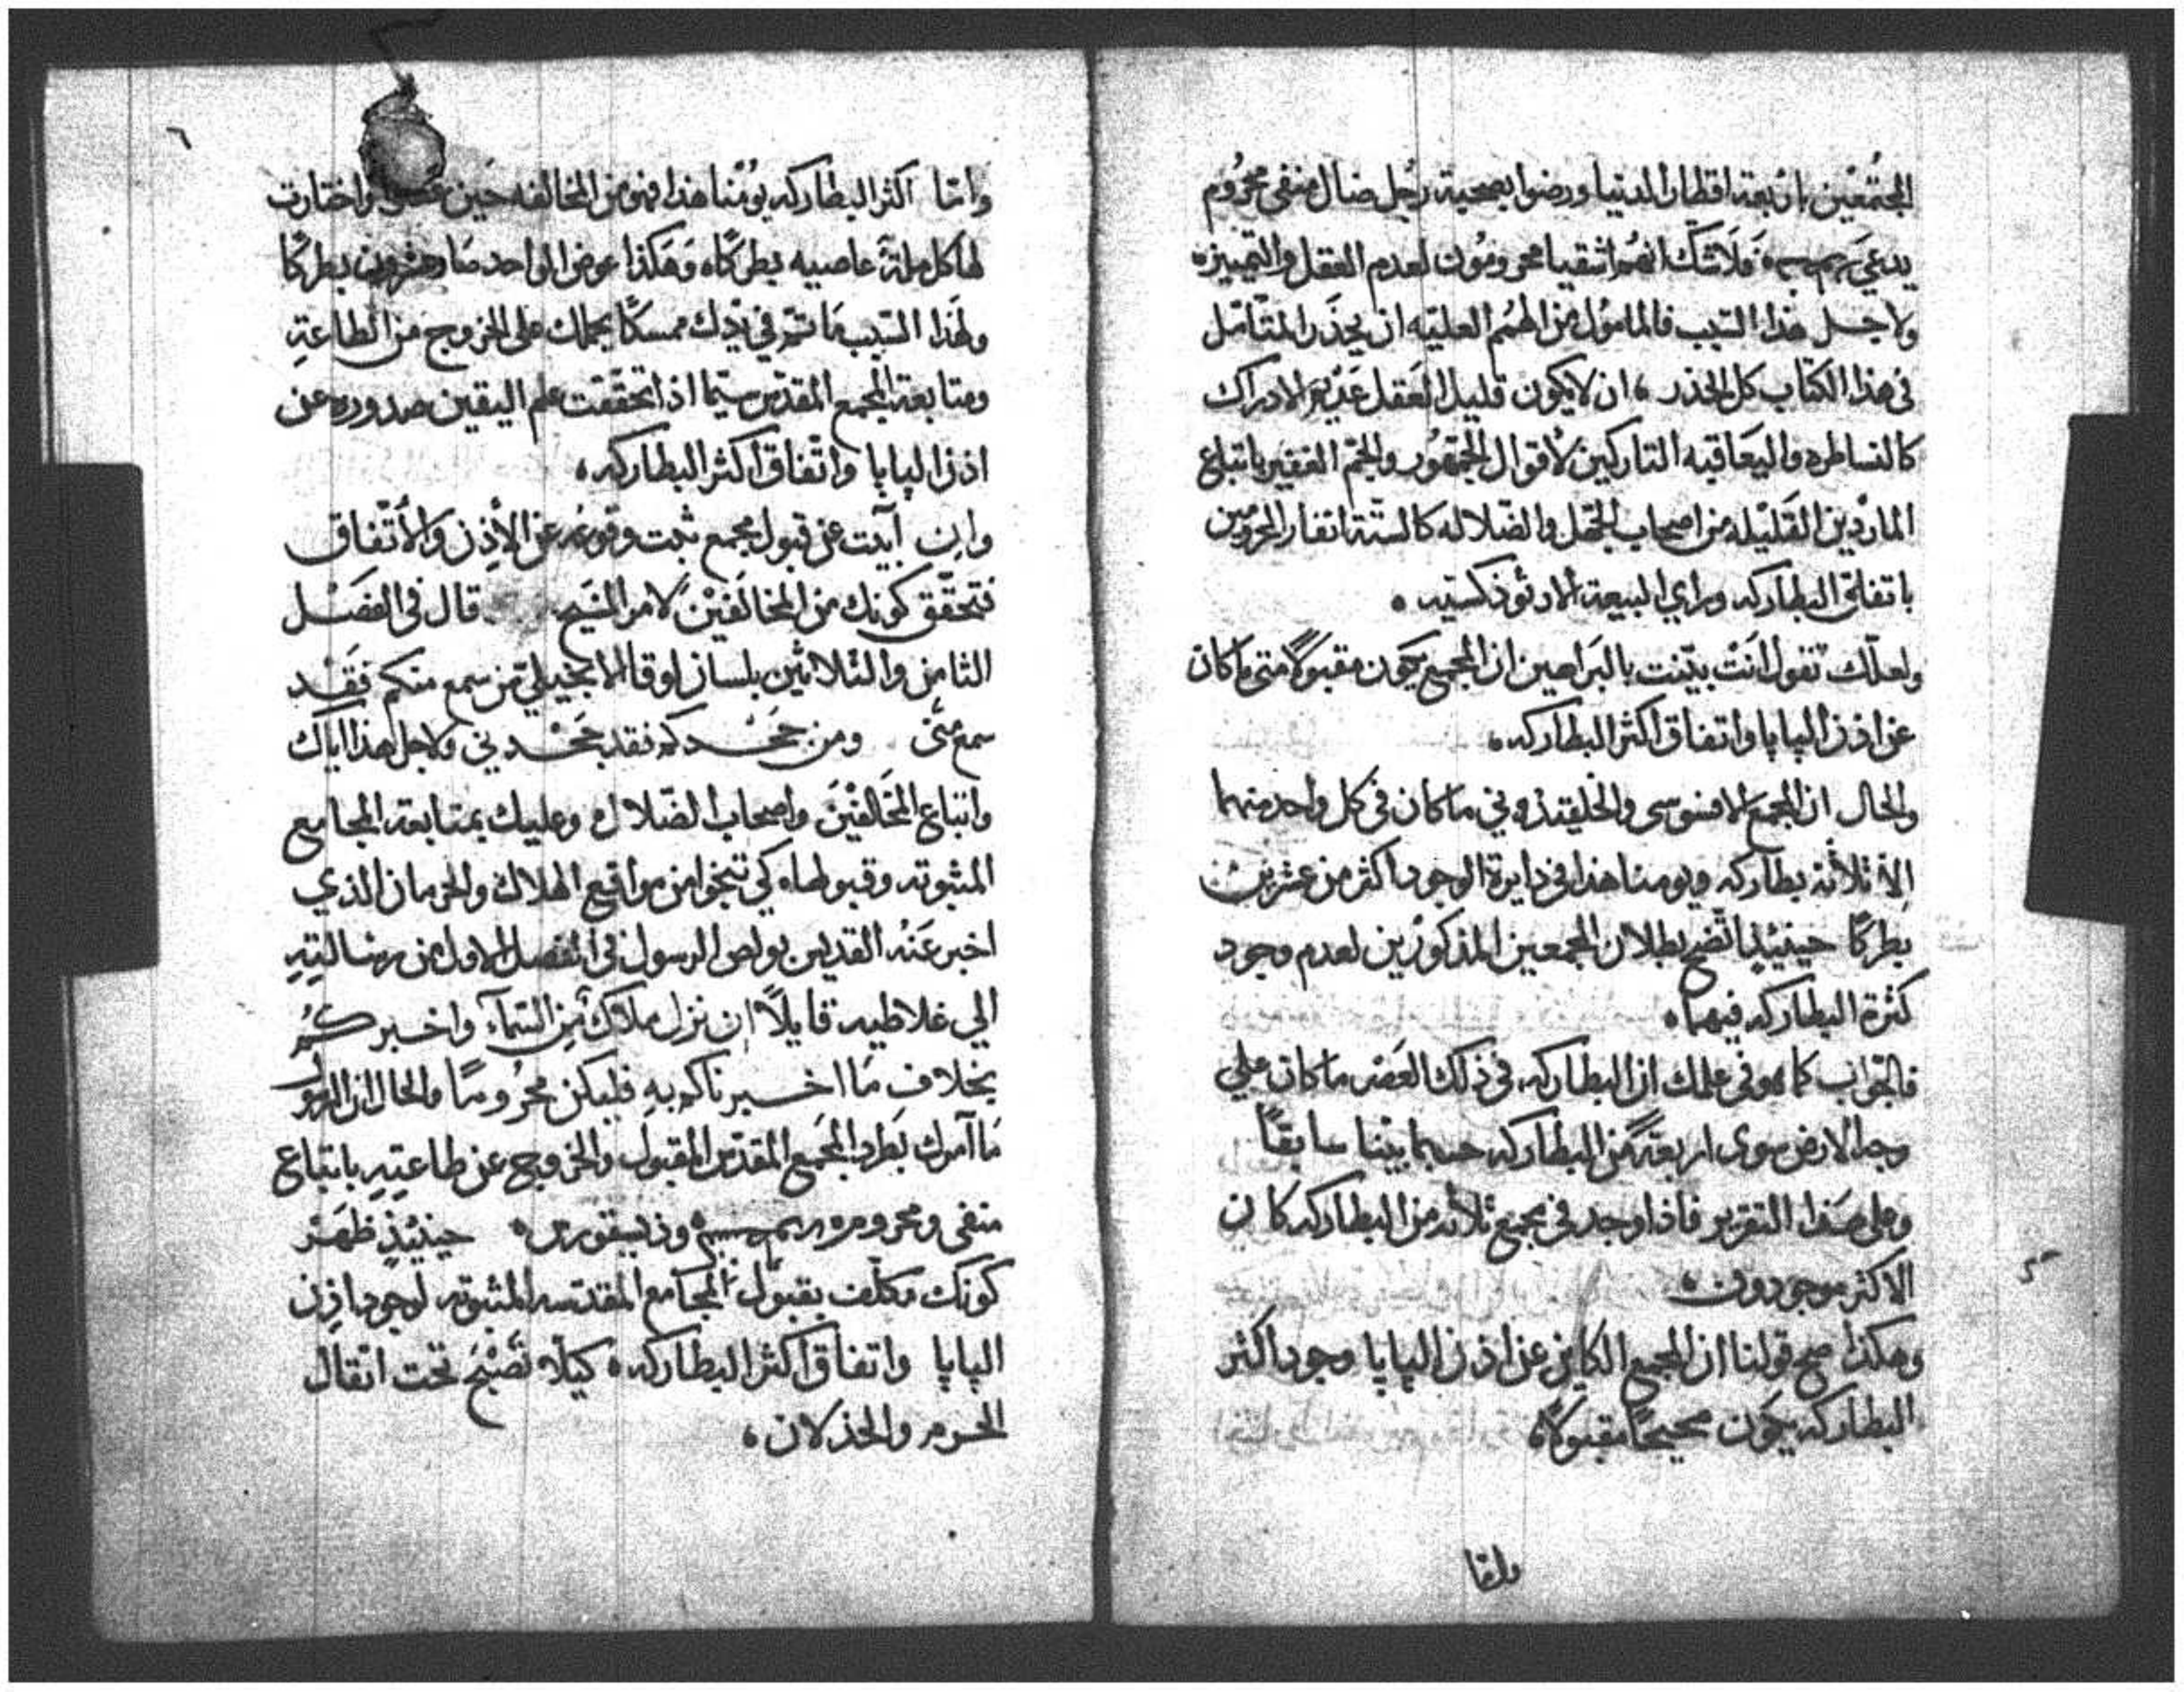 المجتمعين باربعة اقطار الدنيا ورضوا بصحبة رجل ضال منفى محروم
يدعي فلا شك انهم اشقيا محرومون لعدم العقل والتمييز
ولاجل هذا السبب فالمامول من الهمم العليه ان يحذر المتأمل
فى هذا الكتاب كل الحذر ان لا يكون قليل العقل عديم الادراك
كالنساطره واليعاقبه التاركين لأقوال الجمهور والجم الغفير باتباع
الماردين القليله من اصحاب الجهل والضلاله كالستة انفار المحرومين
باتفاق البطاركه وراي البيعة الارثوذكسيه
ولعلك تقول انت بيّنت بالبراهين ان المجمع يكون مقبولاً متى ما كان
عن اذن البابا واتفاق اكثر البطاركه
والحال ان المجمع الافسوسى والخلقيذونى ما كان فى كل واحد منهما
الا ثلاثة بطاركه ويومنا هذا فى دايرة الوجود اكثر من عشرين
بطركًا حينيذٍ اتضح بطلان المجمعين المذكورين لعدم وجود
كثرة البطاركه فيهما
فالجواب كما هو فى علمك ان البطاركه فى ذلك العصر ما كان على
وجه الارض سوى اربعة من البطاركه حسبما بيّنا سابقًا
وعلى هذا التقرير فاذا وجد فى مجمع ثلاثه من البطاركه كان
الاكثر موجودون
وهكذا صح قولنا ان المجمع الكاين عن اذن البابا وجود اكثر
البطاركه يكون صحيحًا مقبولاً
واما
٦
وامّا اكثر البطاركه يومنا هذا فهو من المخالفه حين واختارت
لها كل ملة عاصيه بطركًا وهكذا عوض الواحد صار بطركًا
ولهذا السبب ما ثم في يدك ممسكًا يحملك على الخروج من الطاعةِ
ومتابعة المجمع المقدّس سيّما اذا تحققت علم اليقين صدوره عن
اذن البابا واتّفاق اكثر البطاركه
وان أبيت عن قبول مجمع ثبت وقوعه عن الأذن والأتّفاق
فتحقّق كونك من المخالفين لامر المسيح قال فى الفصل
الثامن والثلاثين بلسان لوقا الانجيلي من سمع منكم فقد
سمع منّى ومن جحدكم فقد جحدني ولاجل هذا اياك
واتباع المخالفين واصحاب الضلال وعليك بمتابعة المجامع
المثبوته وقبولها كي تنجوا من مواقع الهلاك والحرمان الذي
اخبر عنه القديس بولص الرسول في الفصل الاول من رسالتِهِ
الي غلاطيه قايلاً ان نزل ملاك من السمآء واخبركم
بخلاف ما اخبرناكم بهِ فليكن محرومًا والحال ان الرسول
ما آمرك بطرد المجمع المقدّس المقبول والخروج عن طاعتِهِ باتباع
منفى ومحروم وذيسقورس حينئذٍ ظهر
كونك مكلّف بقبول المجامع المقدّسه المثبوته لوجود اذن
البابا واتفاق اكثر البطاركه كيلا تصبح تحت اثقال
الحرم والخذلان